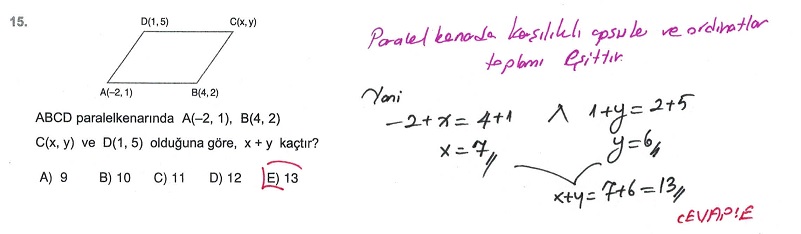 15.
D(1, 5)
C(x, y)
A(–2, 1)
B(4, 2)
ABCD paralelkenarında A(–2, 1), B(4, 2)
C(x, y) ve D(1, 5) olduğuna göre, x + y kaçtır?
A) 9 B) 10 C) 11 D) 12 E) 13
Paralelkenarda karşılıklı apsisler ve ordinatlar
toplamı eşittir.
Yani
-2+x=4+1 ∧ 1+y=2+5
x=7 y=6
x+y=7+6=13
CEVAP:E